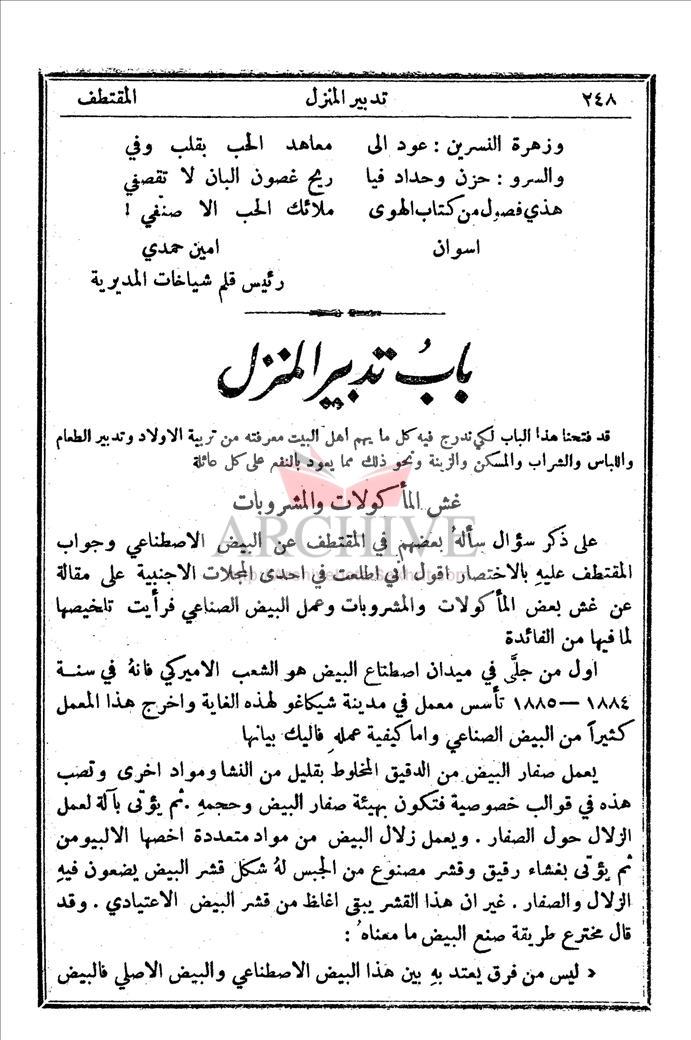 ٢٤٨ تدبير المنزل المقتطف
وزهرة النسرين : عود الى معاهد الحب بقلب وفي
والسرو : حزن وحداد فيا ريح غصون البان لا تقصفي
هذي فصول من كتاب الهوى ملائك الحب الا صنفي !
اسوان امين حمدي
رئيس قلم شياخات المديرية
بابُ تدبير المنزل
قد فتحنا هذا الباب لكي ندرج فيه كل ما يهم أهل البيت معرفته من تربية الاولاد وتدبير الطعام
واللباس والشراب والمسكن والزينة ونحو ذلك مما يعود بالنفع على كل عائلة
غش المأكولات والمشروبات
ARCHIVE
على ذكر سؤال سألهُ بعضهم في المقتطف عن البيض الاصطناعي وجواب
المقتطف عليهِ بالاختصار اقول اني اطلعت في احدى المجلات الاجنبية على مقالة
عن غش بعض المأكولات والمشروبات وعمل البيض الصناعي فرأيت تلخيصها
لما فيها من الفائدة
اول من جلَّى في ميدان اصطناع البيض هو الشعب الاميركي فانهُ في سنة
١٨٨٤ — ١٨٨٥ تأسس معمل في مدينة شيكاغو لهذه الغاية واخرج هذا المعمل
كثيراً من البيض الصناعي واما كيفية عملهِ فاليك بيانها
يعمل صفار البيض من الدقيق المخلوط بقليل من النشا ومواد اخرى وتصب
هذه في قوالب خصوصية فتكون بهيئة صفار البيض وحجمهِ . ثم يؤتى بآلة لعمل
الزلال حول الصفار . ويعمل زلال البيض من مواد متعددة اخصها الالبيومن
ثم يؤتى بغشاء رقيق وقشر مصنوع من الجبس لهُ شكل قشر البيض يضعون فيهِ
الزلال والصفار . غير ان هذا القشر يبقى اغلظ من قشر البيض الاعتيادي . وقد
قال مخترع طريقة صنع البيض ما معناهُ :
« ليس من فرق يعتد بهِ بين هذا البيض الاصطناعي والبيض الاصلي فالبيض